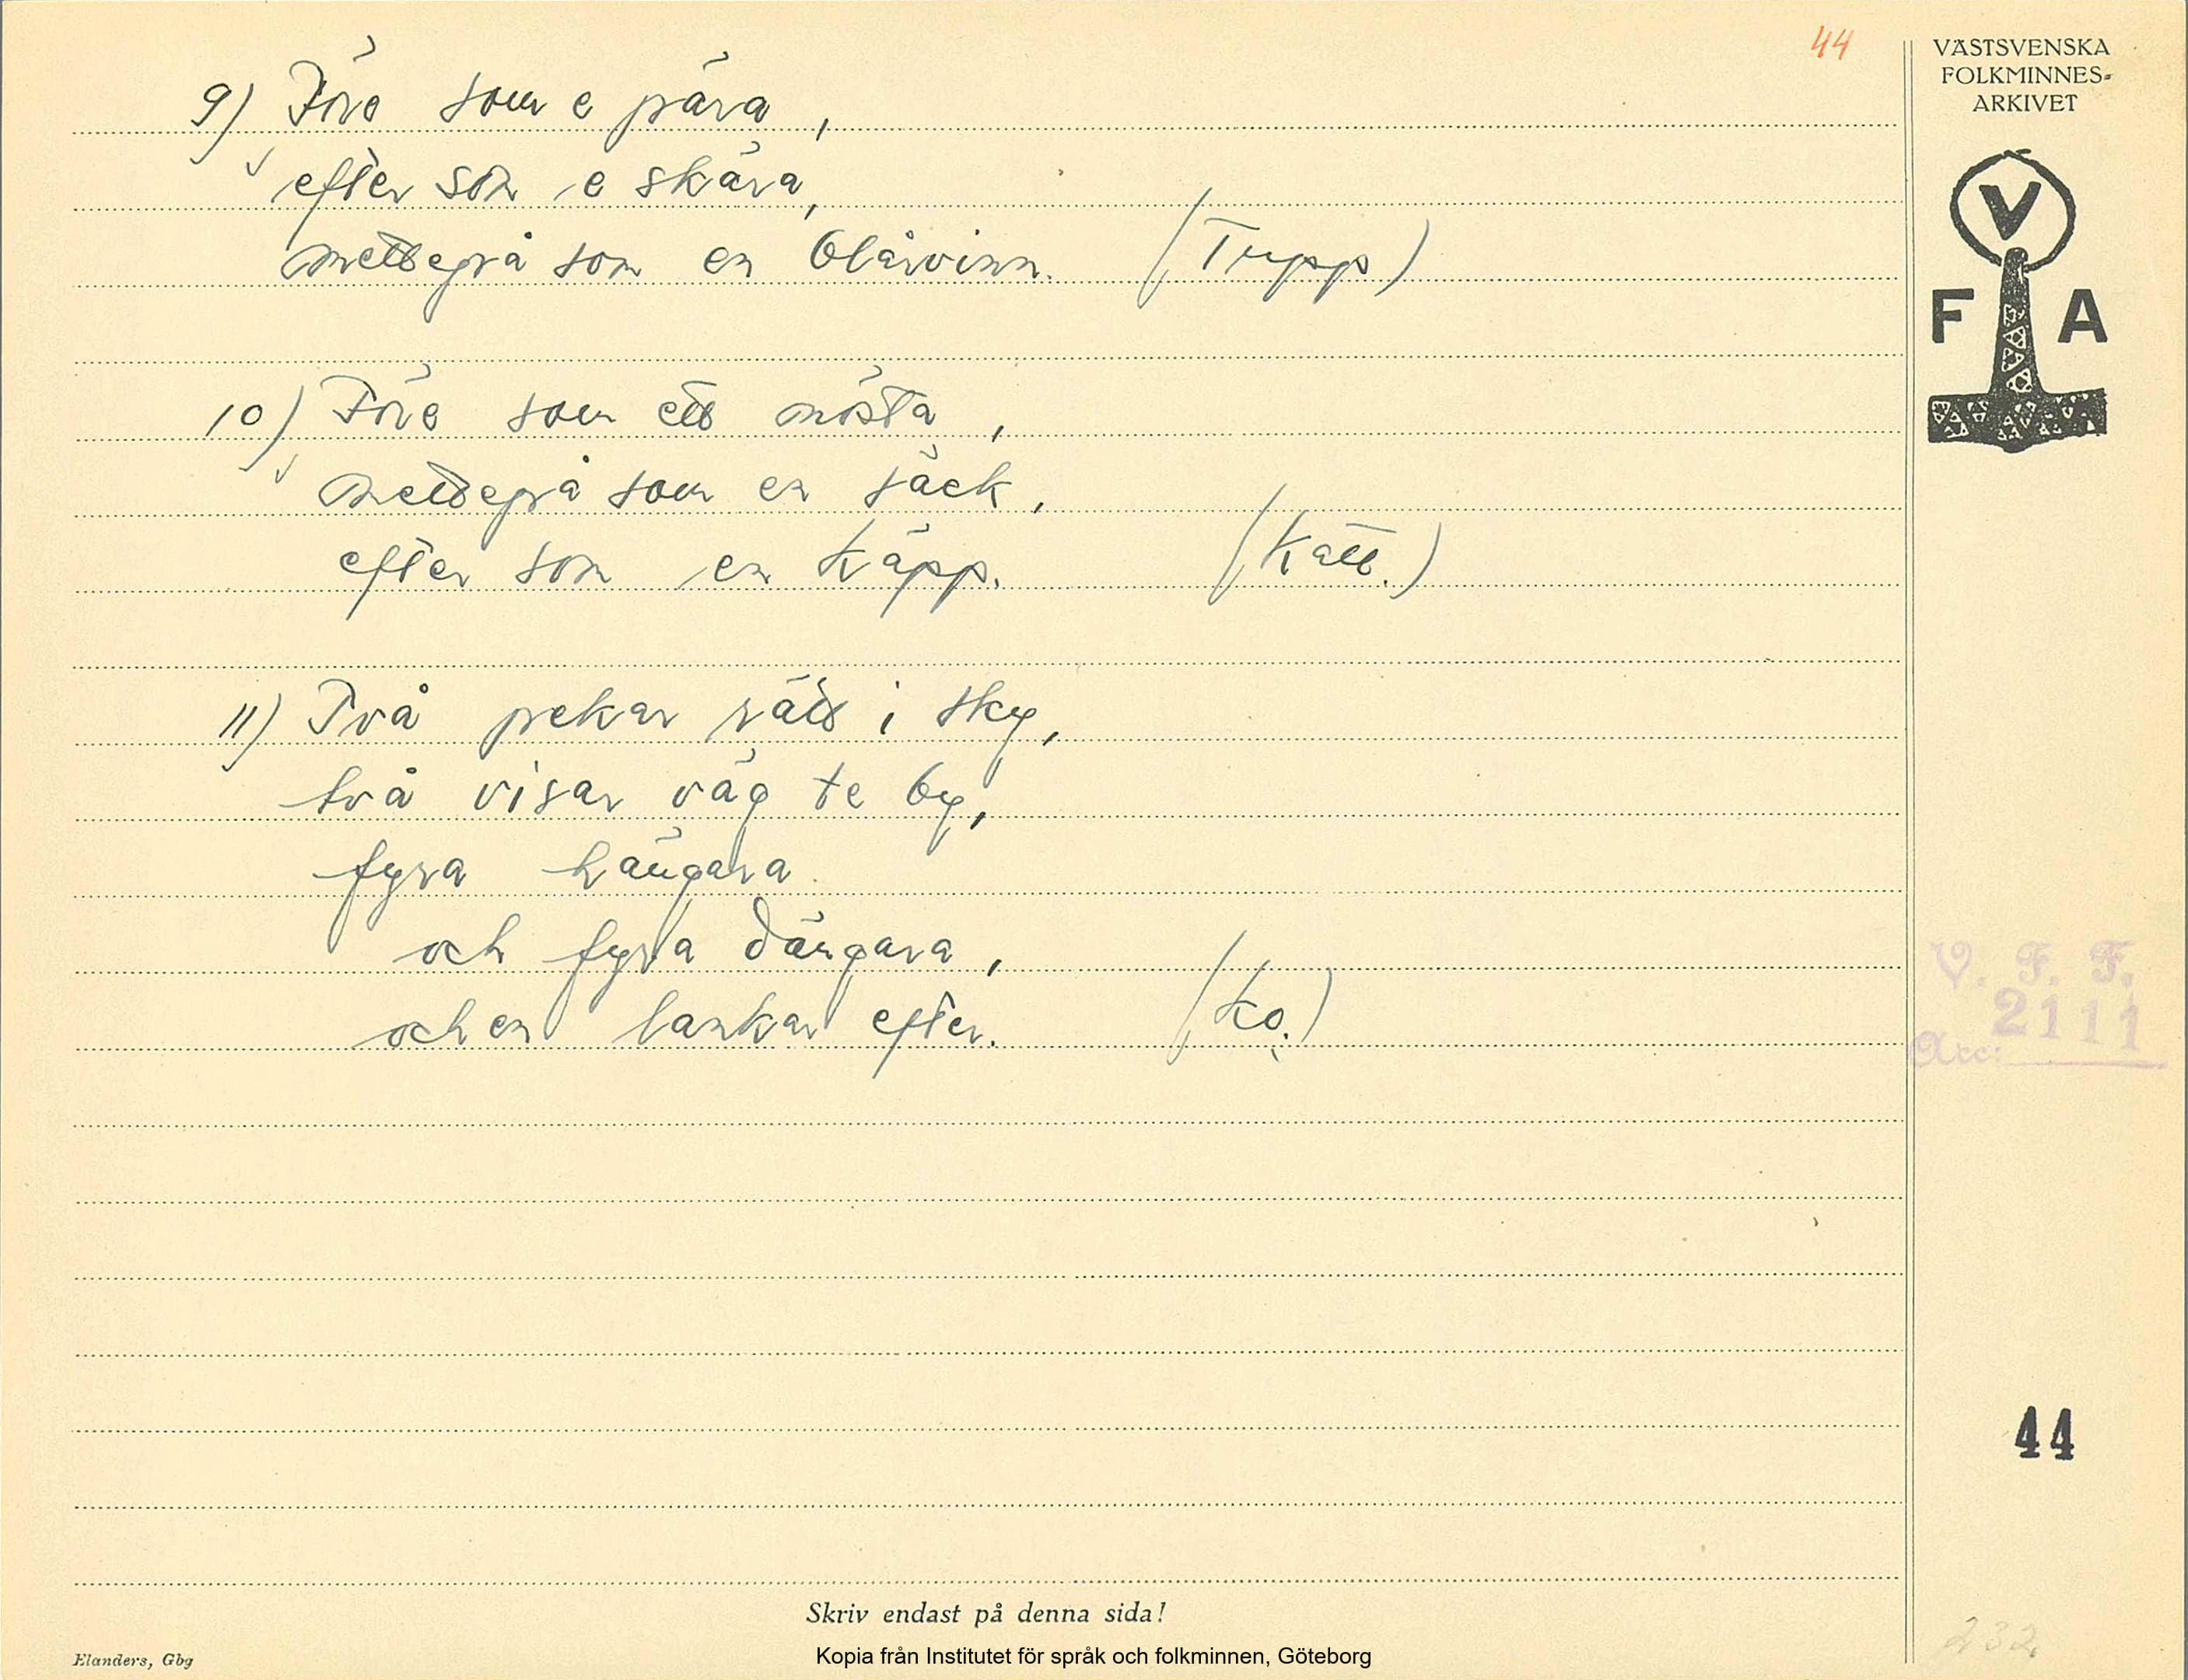 44
9) Före som e pära,
efter som e skära,
mettegrå som en blårvinn. (Tupp)
10) Före som ett nösta,
mettegrå som en säck,
efter som en käpp. (Katt.)
11) Två pekar rätt i sky,
två visar väg te by,
fyra hängara
och fyra dängara,
och en lankar efter. (Ko.)
VÄSTSVENSKA
FOLKMINNES-
ARKIVET
V
F A
V. F. F.
2111
Acc:
44
232
Skriv endast på denna sida!
Kopia från Institutet för språk och folkminnen, Göteborg
Elanders, Gbg